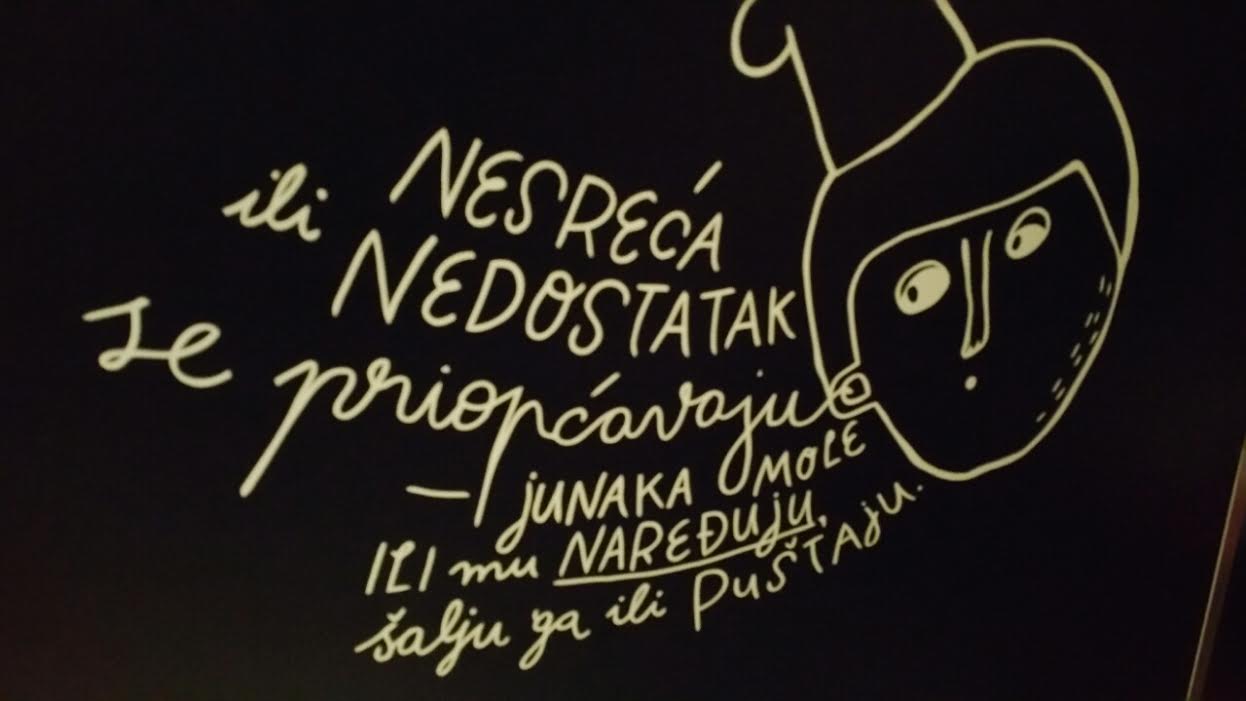 ili NESREĆA
NEDOSTATAK
se priopćavaju
– JUNAKA MOLE
ILI mu NAREĐUJU,
šalju ga ili PUŠTAJU.